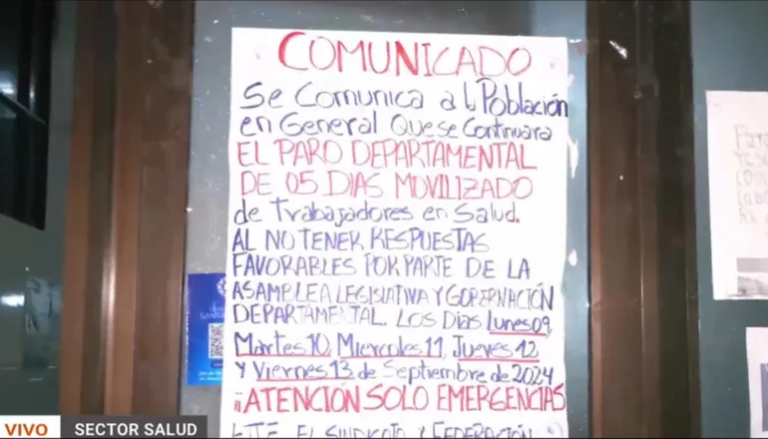 COMUNICADO
Se Comunica a l Población
en General Que se Continuara
EL PARO DEPARTAMENTAL
DE 05 DIAS MOVILIZADO
de Trabajadores en Salud.
AL NO TENER RESPUESTAS
FAVORABLES POR PARTE DE LA
ASAMBLEA LEGISLATIVA Y GOBERNACIÓN
DEPARTAMENTAL. Los Dias Lunes 09,
Martes 10, Miercoles 11, Jueves 12
Y Viernes 13 de Septiembre de 2024
¡ATENCIÓN SOLO EMERGENCIAS
EL SINDICATO Y FEDERACIÓN
VIVO SECTOR SALUD